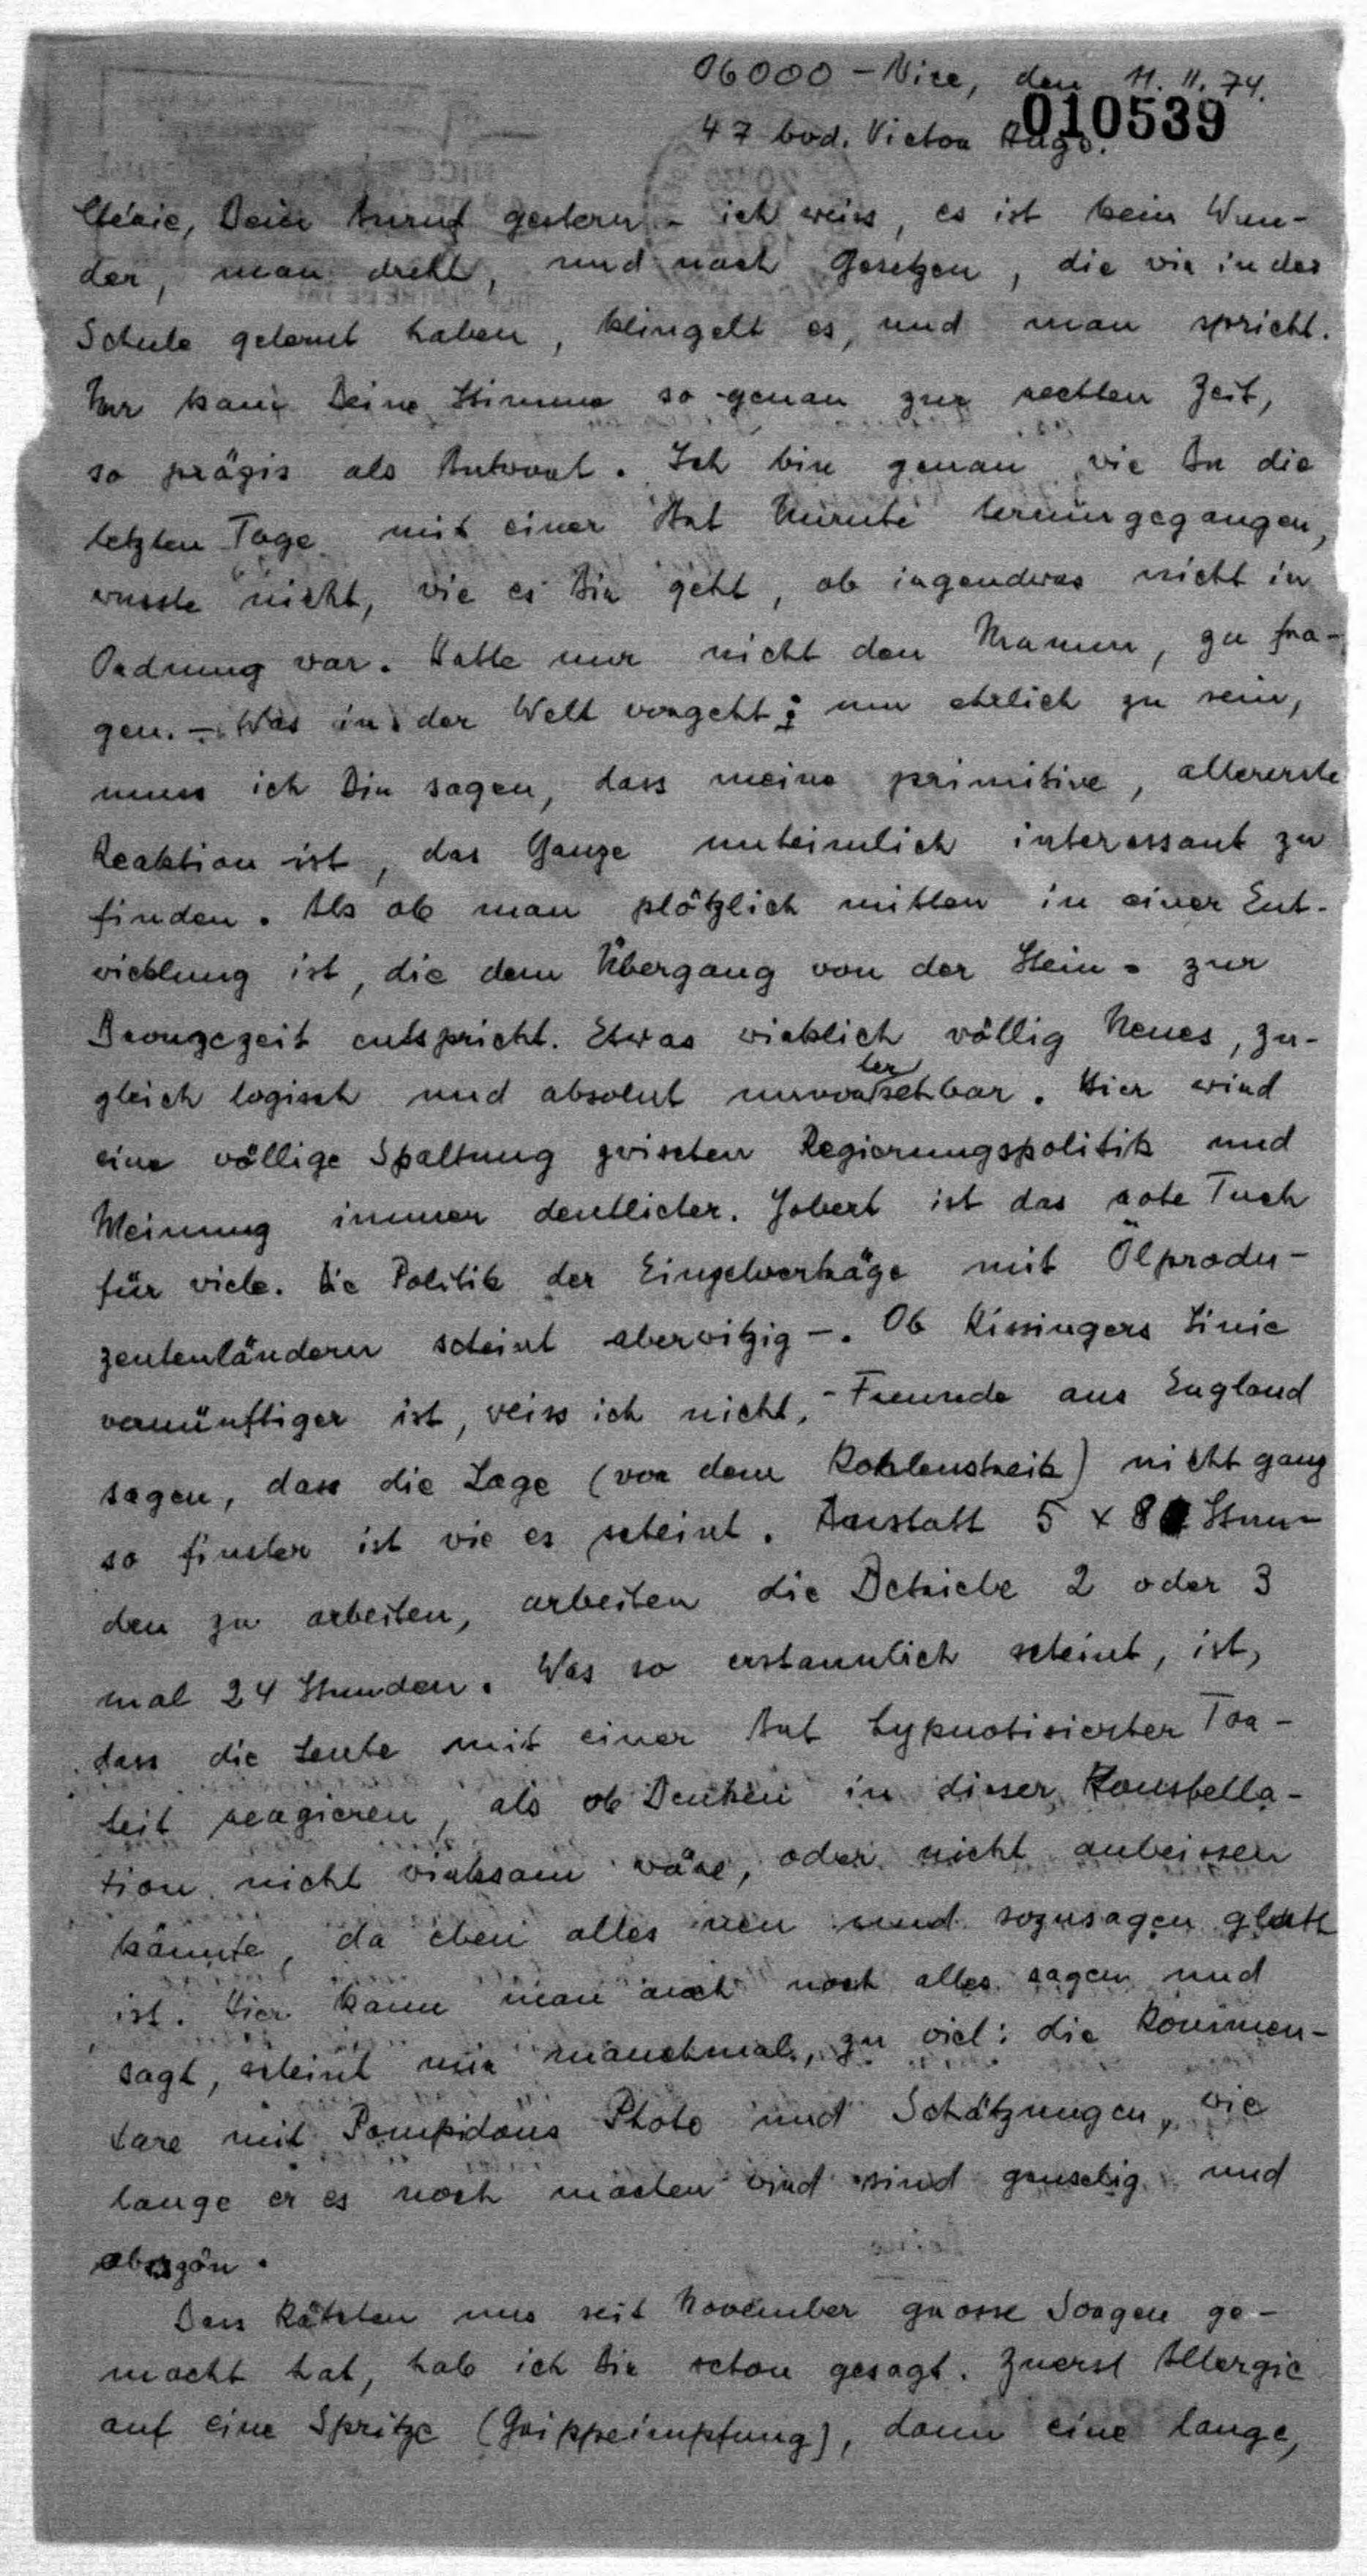 06000 - Nice, den 11. II. 74.
010539
47 bvd. Victor Hugo.
Chérie, Dein Anruf gestern - ich weiss, es ist kein Wun-
der, man dreht, und nach Gesetzen, die wir in der
Schule gelernt haben, klingelt es, und man spricht.
Nur kam Deine Stimme so genau zur rechten Zeit,
so präzis als Antwort. Ich bin genau wie Du die
letzten Tage mit einer Art Unruhe herumgegangen,
wusste nicht, wie es Dir geht, ob irgendwas nicht in
Ordnung war. Hatte nur nicht den Mumm, zu fra-
gen. - Was in der Welt vorgeht: um ehrlich zu sein,
muss ich Dir sagen, dass meine primitive, allererste
Reaktion ist, das Ganze unheimlich interessant zu
finden. Als ob man plötzlich mitten in einer Ent-
wicklung ist, die dem Übergang von der Stein- zur
Bronzezeit entspricht. Etwas wirklich völlig Neues, zu-
gleich logisch und absolut unvorhersehbar. Hier wird
eine völlige Spaltung zwischen Regierungspolitik und
Meinung immer deutlicher. Jobert ist das rote Tuch
für viele. Die Politik der Einzelverträge mit Ölprodu-
zentenländern scheint aberwitzig -. Ob Kissingers Linie
vernünftiger ist, weiss ich nicht. - Freunde aus England
sagen, dass die Lage (vor dem Kohlenstreik) nicht ganz
so finster ist wie es scheint. Anstatt 5 x 8 Stun-
den zu arbeiten, arbeiten die Betriebe 2 oder 3
mal 24 Stunden. Was so erstaunlich scheint, ist,
dass die Leute mit einer Art hypnotisierter Tra-
heit reagieren, als ob Denken in dieser Konstella-
tion nicht wirksam wäre, oder nicht anbeissen
könnte, da eben alles neu und sozusagen glatt
ist. Hier kann man auch noch alles sagen und
sagt, scheint mir manchmal, zu viel: die Kommen-
tare mit Pompidous Photo und Schätzungen, wie
lange er es noch machen wird sind gruselig und
obszön.
Dass Kätchen uns seit November grosse Sorgen ge-
macht hat, hab ich Dir schon gesagt. Zuerst Allergie
auf eine Spritze (Grippeimpfung), dann eine lange,